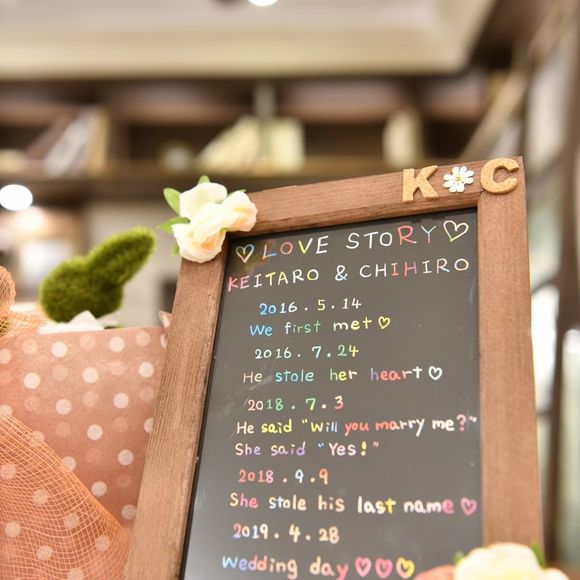 K C
♡ LOVE STORY ♡
KEITARO & CHIHIRO
2016.5.14
We first met ♡
2016.7.24
He stole her heart ♡
2018.7.3
He said "Will you marry me?"
She said "Yes!"
2018.9.9
She stole his last name ♡
2019.4.28
Wedding day ♡♡♡